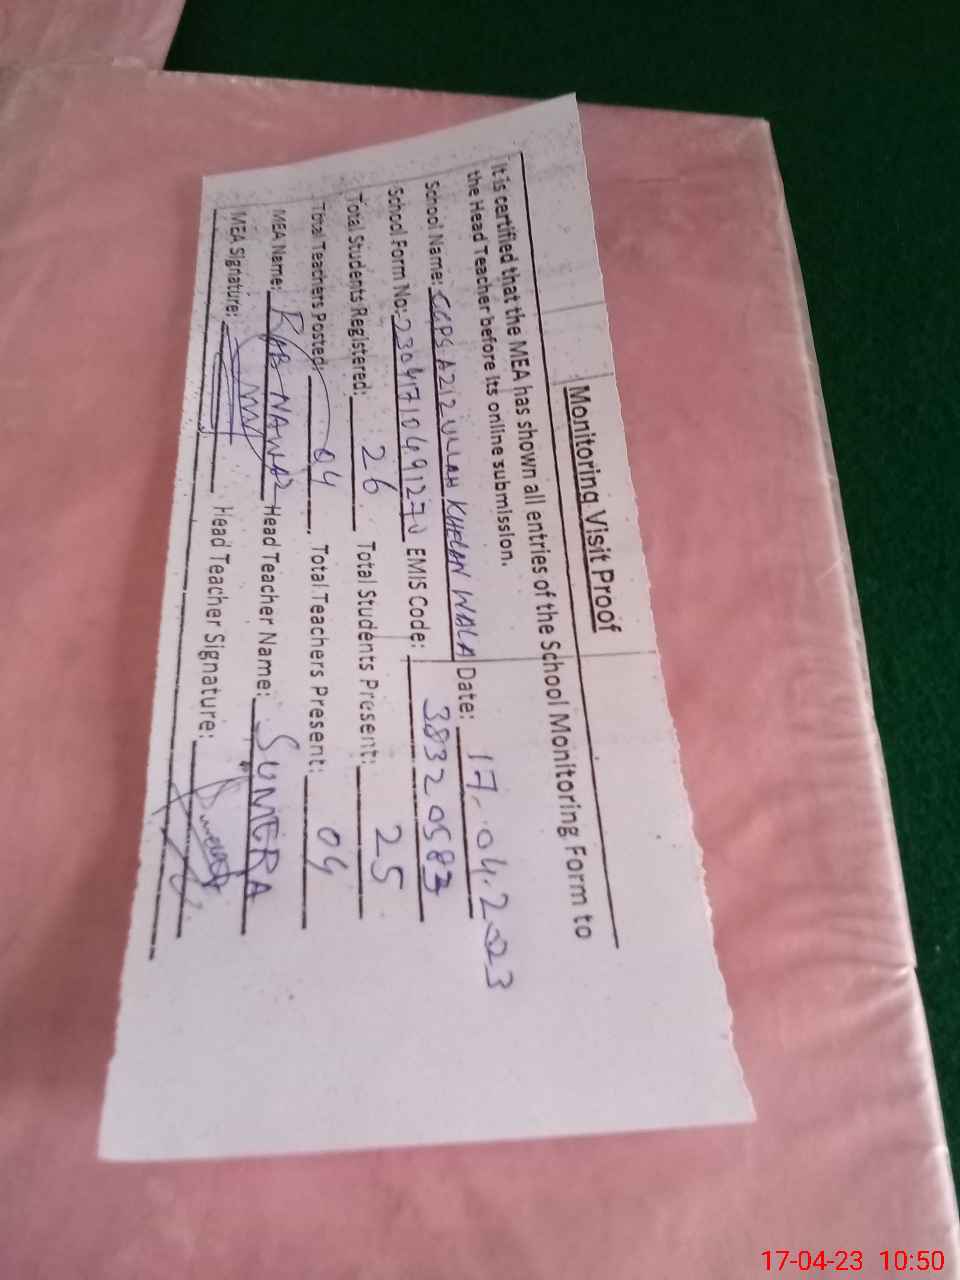 Monitoring Visit Proof
It is certified that the MEA has shown all entries of the School Monitoring Form to
the Head Teacher before its online submission.
School Name: GGPS AZIZ ULLAH KHELAN WALA Date: 17.04.2023
School Form No: 2304171049127 EMIS Code: 38320583
Total Students Registered: 26 Total Students Present: 25
Total Teachers Posted: 04 Total Teachers Present: 04
MEA Name: RAB NAWAZ Head Teacher Name: SUMERA
MEA Signature: Head Teacher Signature:
17-04-23 10:50